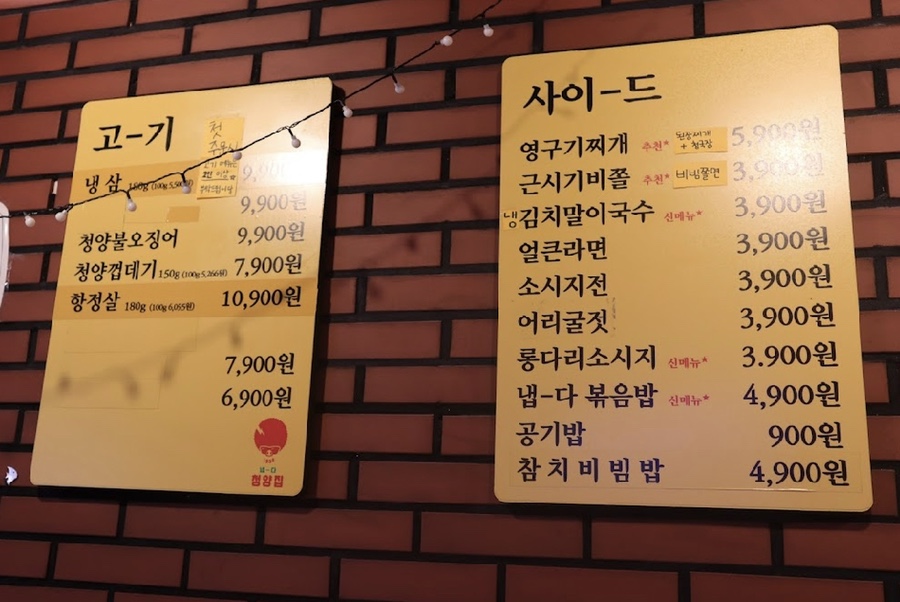 고-기
첫
주문시
고기 메뉴는
2인 이상
부탁드립니다
냉삼 180g (100g 5,500원) 9,900원
9,900원
청양불오징어 9,900원
청양껍데기 150g (100g 5,266원) 7,900원
항정살 180g (100g 6,055원) 10,900원
7,900원
6,900원
냅-다
청양집
사이-드
영구기찌개 추천* 된장찌개 + 청국장 5,900원
근시기비쫄 추천* 비빔쫄면 3,900원
냉김치말이국수 신메뉴* 3,900원
얼큰라면 3,900원
소시지전 3,900원
어리굴젓 3,900원
롱다리소시지 신메뉴* 3.900원
냅-다 볶음밥 신메뉴* 4,900원
공기밥 900원
참치비빔밥 4,900원